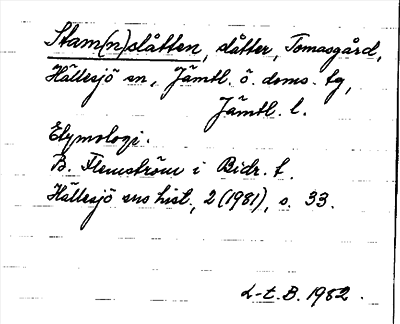 Stam(n)slåtten, slåtter, Tomasgård,
Hällesjö sn, Jämtl. ö. doms. tg,
Jämtl. l.
Etymologi.
B. Flemström i Bidr. t.
Hällesjö sns hist., 2 (1981), s. 33.
L-t. B. 1982.